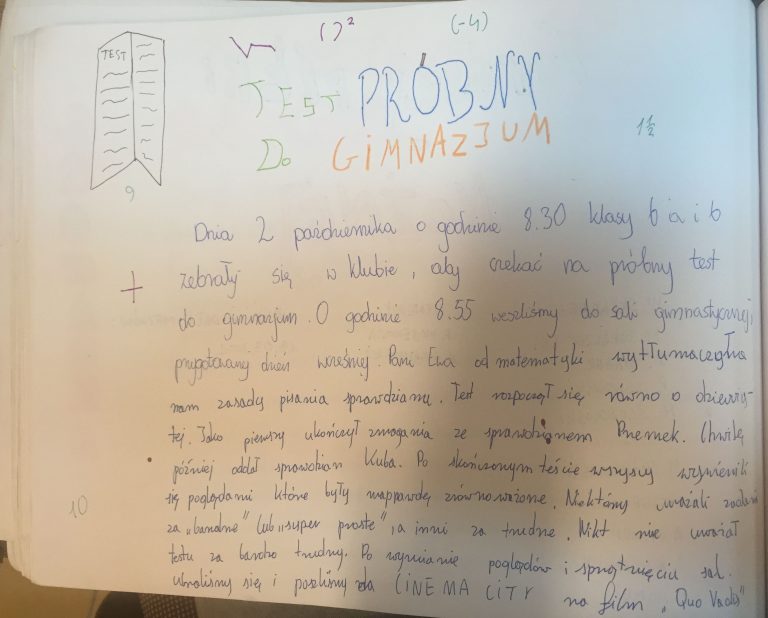 √ ( )² (-4)
TEST
TEST PRÓBNY
1½
DO GIMNAZJUM
9
Dnia 2 października o godzinie 8.30 klasy 6 a i b
+
zebrały się w klubie, aby czekać na próbny test
do gimnazjum. O godzinie 8.55 weszliśmy do sali gimnastycznej,
przygotowanej dzień wcześniej. Pani Ewa od matematyki wytłumaczyła
nam zasady pisania sprawdzianu. Test rozpoczął się równo o dziewią-
tej. Jako pierwszy ukończył zmagania ze sprawdzianem Przemek. Chwilę
później oddał sprawdzian Kuba. Po skończonym teście wszyscy wymienili
10
się poglądami które były naprawdę zrównoważone. Niektórzy uważali zadania
za „banalne" lub „super proste", a inni za trudne. Nikt nie uważał
testu za bardzo trudny. Po wymianie poglądów i sprzątnięciu sal.
ubraliśmy się i poszliśmy do CINEMA CITY na film „Quo Vadis"